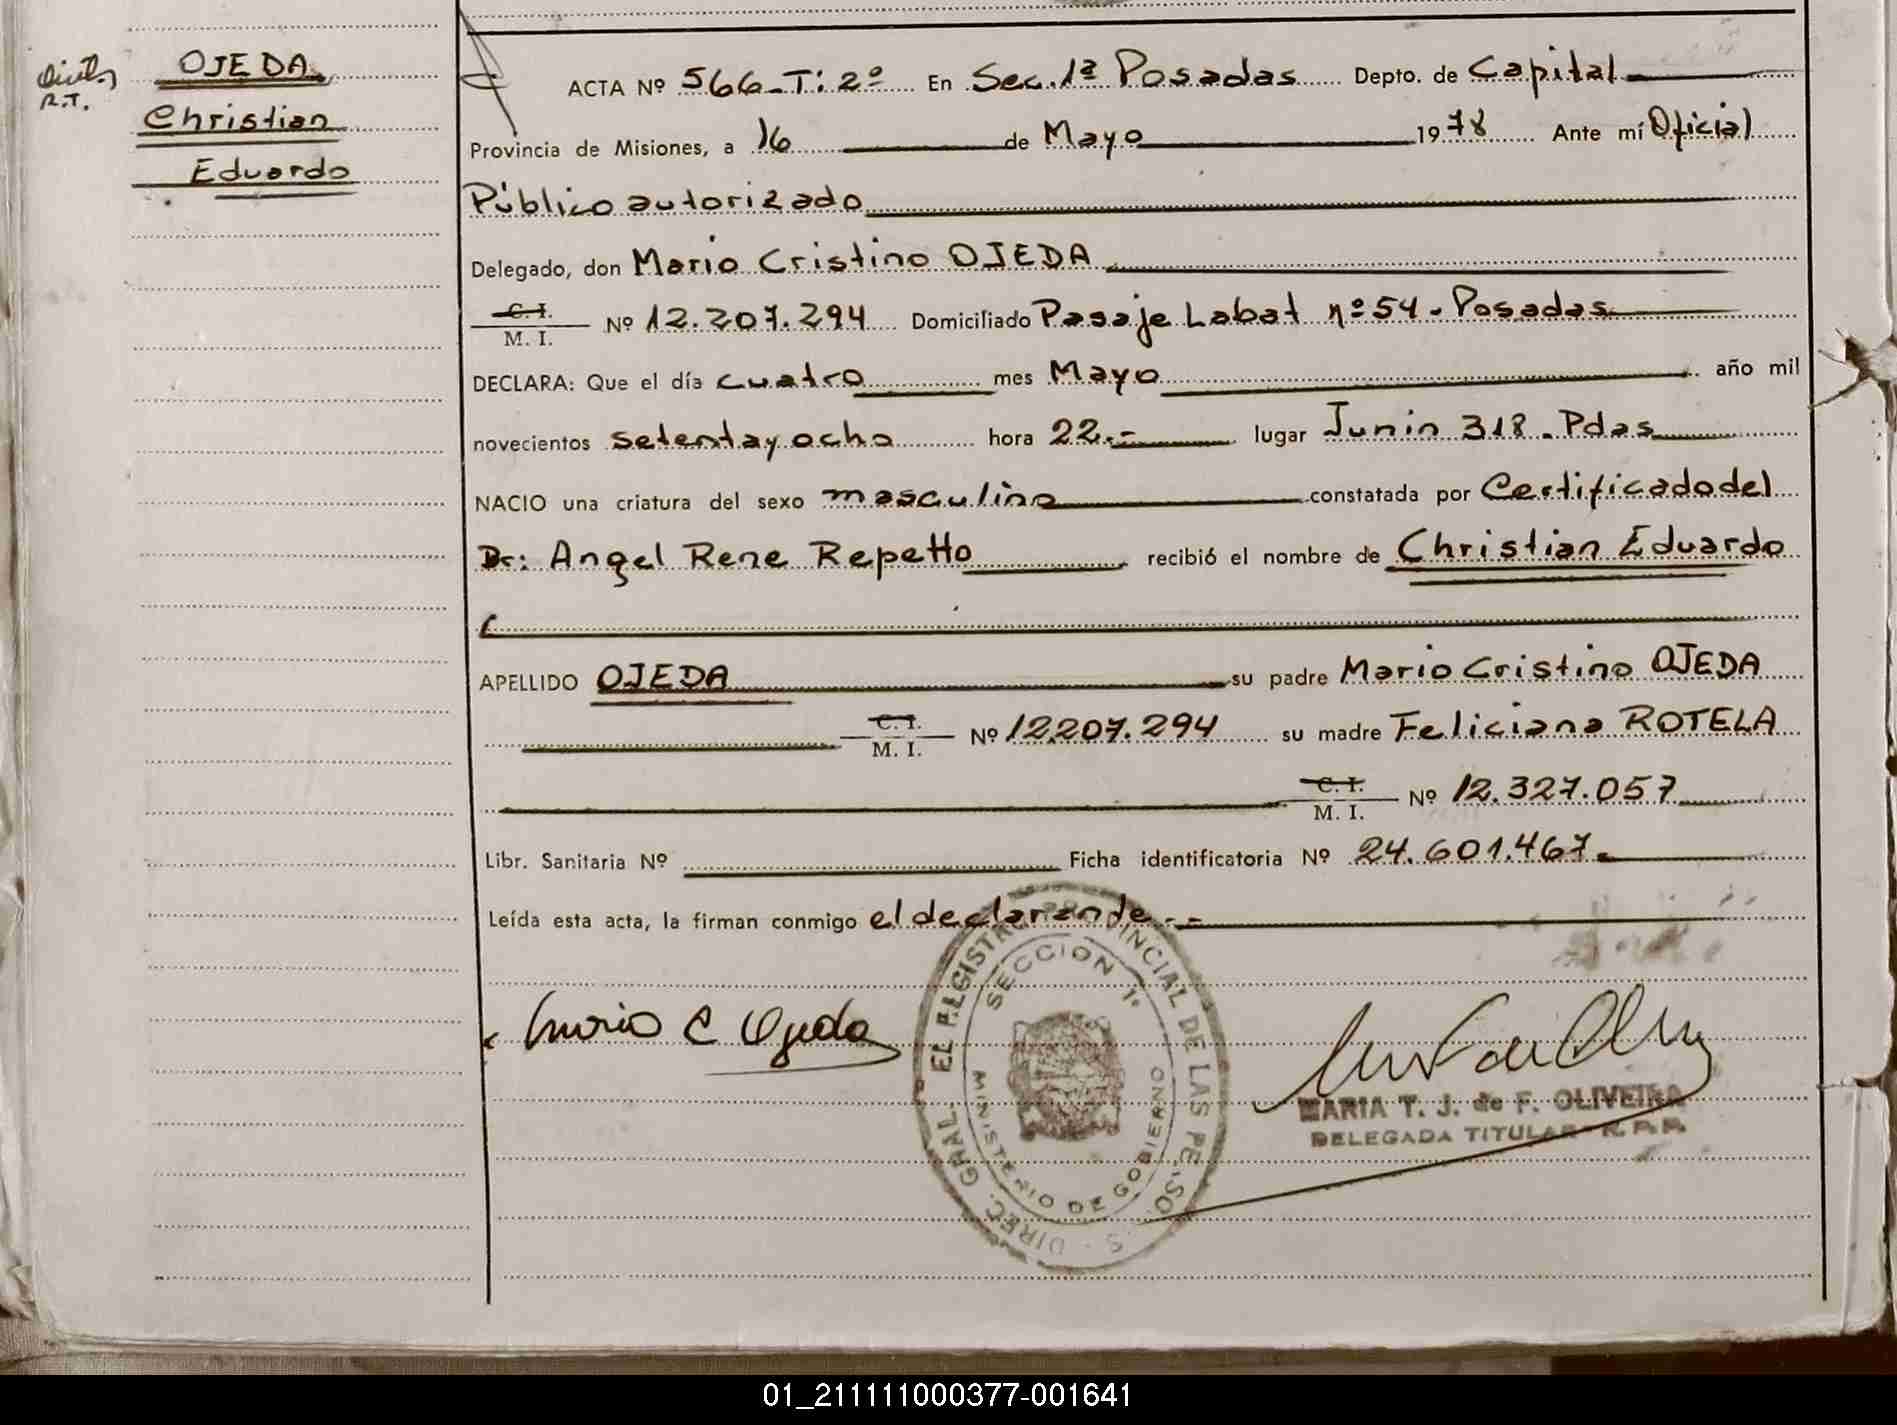 OJEDA
R.T.
Christian
Eduardo
ACTA Nº 566-T: 2º En Sec. 1ª Posadas Depto. de Capital
Provincia de Misiones, a 16 de Mayo 1978 Ante mí Oficial
Público autorizado
Delegado, don Mario Cristino OJEDA
C. I.
M. I. Nº 12.207.294 Domiciliado Pasaje Labat nº 54 - Posadas
DECLARA: Que el día cuatro mes Mayo año mil
novecientos setentayocho hora 22.- lugar Junin 318 - Pdas
NACIO una criatura del sexo masculino constatada por Certificado del
Dr: Angel Rene Repetto recibió el nombre de Christian Eduardo
APELLIDO OJEDA su padre Mario Cristino OJEDA
C. I.
M. I. Nº 12.207.294 su madre Feliciana ROTELA
C. I.
M. I. Nº 12.327.057
Libr. Sanitaria Nº Ficha identificatoria Nº 24.601.467
Leída esta acta, la firman conmigo el declarande.-
Mario C Ojeda
SECCION 1º
MINISTERIO DE GOBIERNO
MARIA T. J. de F. OLIVEIRA
DELEGADA TITULAR R. P. P.
01_211111000377-001641